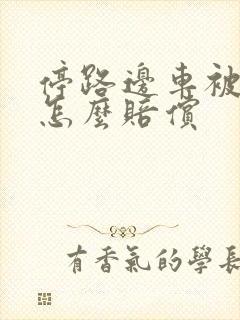 停路邊車被
怎麼賠償
有香氣的學長